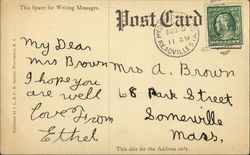 This Space for Writing Messages.
Post Card
AUG
11 AM
READVILLE
My Dear
Mrs Brown
I hope you
are well
love from
Ethel
Mrs A. Brown
68 Park Street
Somerville
Mass.
This side for the Address only.